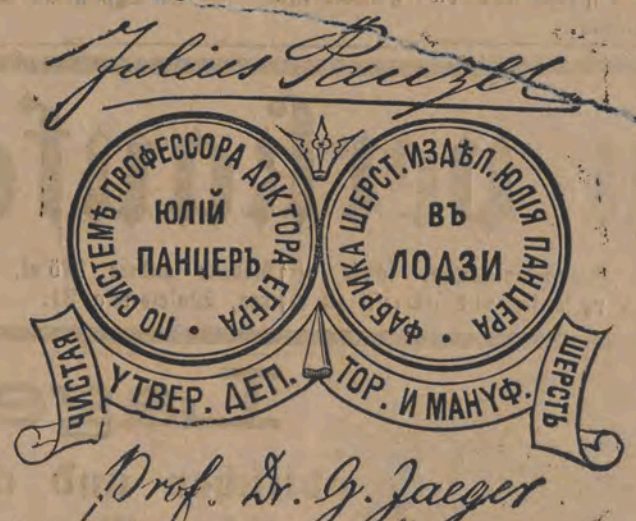 Julius Panzer
ПО СИСТЕМѢ ПРОФЕССОРА ДОКТОРА ЕГЕРА
ЮЛІЙ
ПАНЦЕРЪ
ФАБРИКА ШЕРСТ. ИЗДѢЛ. ЮЛІЯ ПАНЦЕРА
ВЪ
ЛОДЗИ
ЧИСТАЯ
УТВЕР. ДЕП.
ТОР. И МАНУФ.
ШЕРСТЬ
Prof. Dr. G. Jaeger